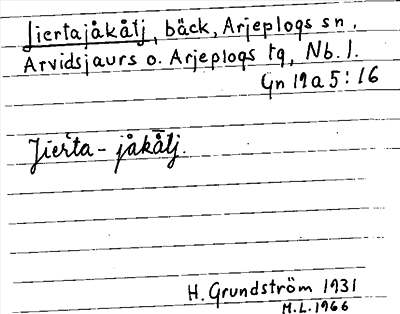 Jiertajåkåtj, bäck, Arjeplogs sn,
Arvidsjaurs o. Arjeplogs tg, Nb. l.
Gn 19 a 5 : 16
Jierta - jåkåtj.
H. Grundström 1931
M.L. 1966